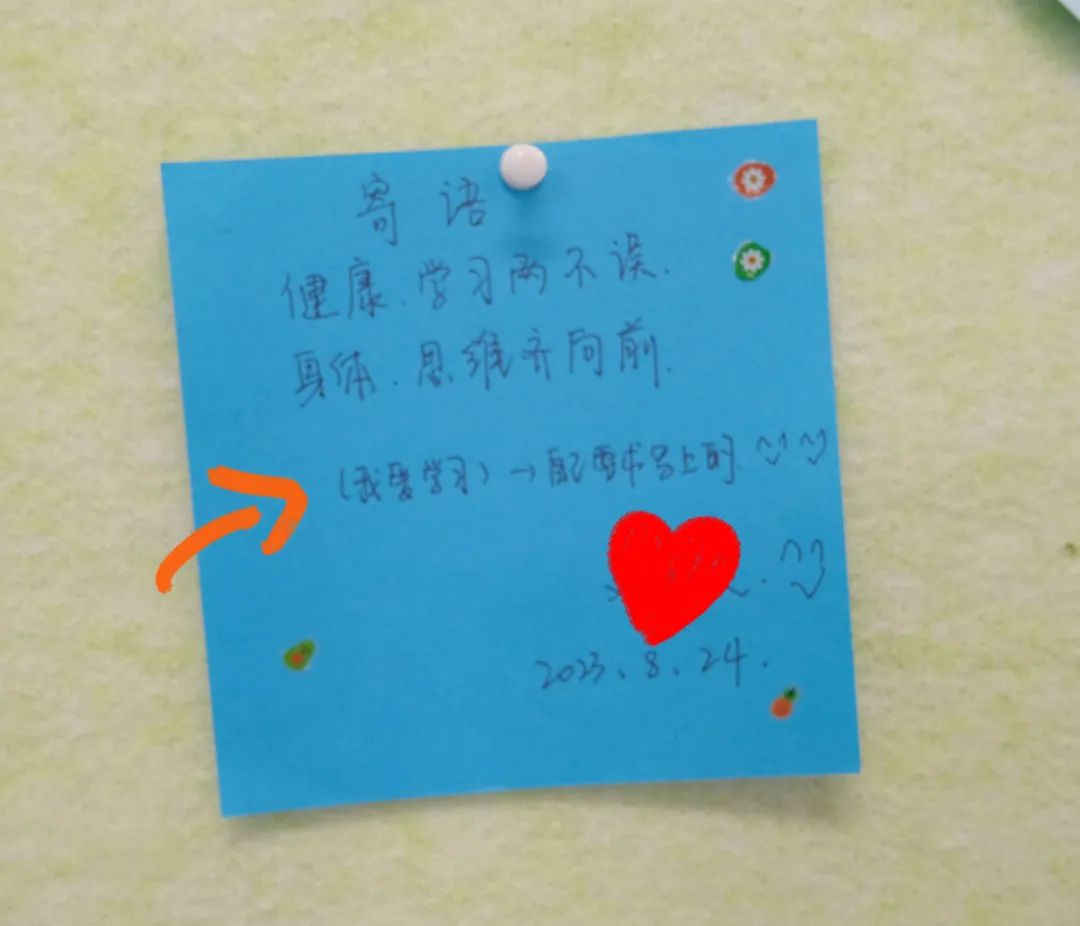 寄语
健康.学习两不误.
身体.思维齐向前.
(我要学习)→配要求写上的.
2023.8.24.